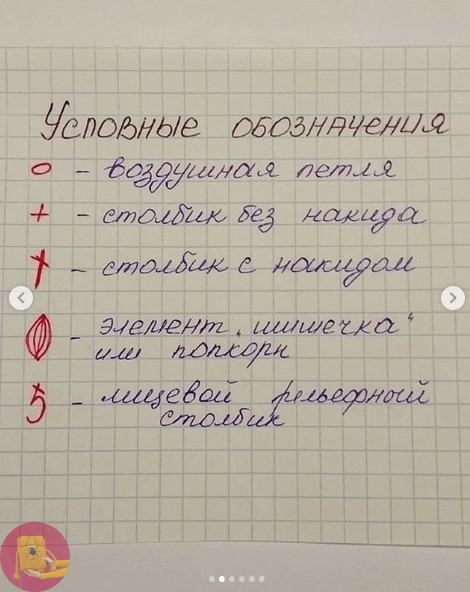 Условные обозначения
o - воздушная петля
+ - столбик без накида
† - столбик с накидом
- элемент „шишечка"
или попкорн
5 - лицевой рельефный
столбик